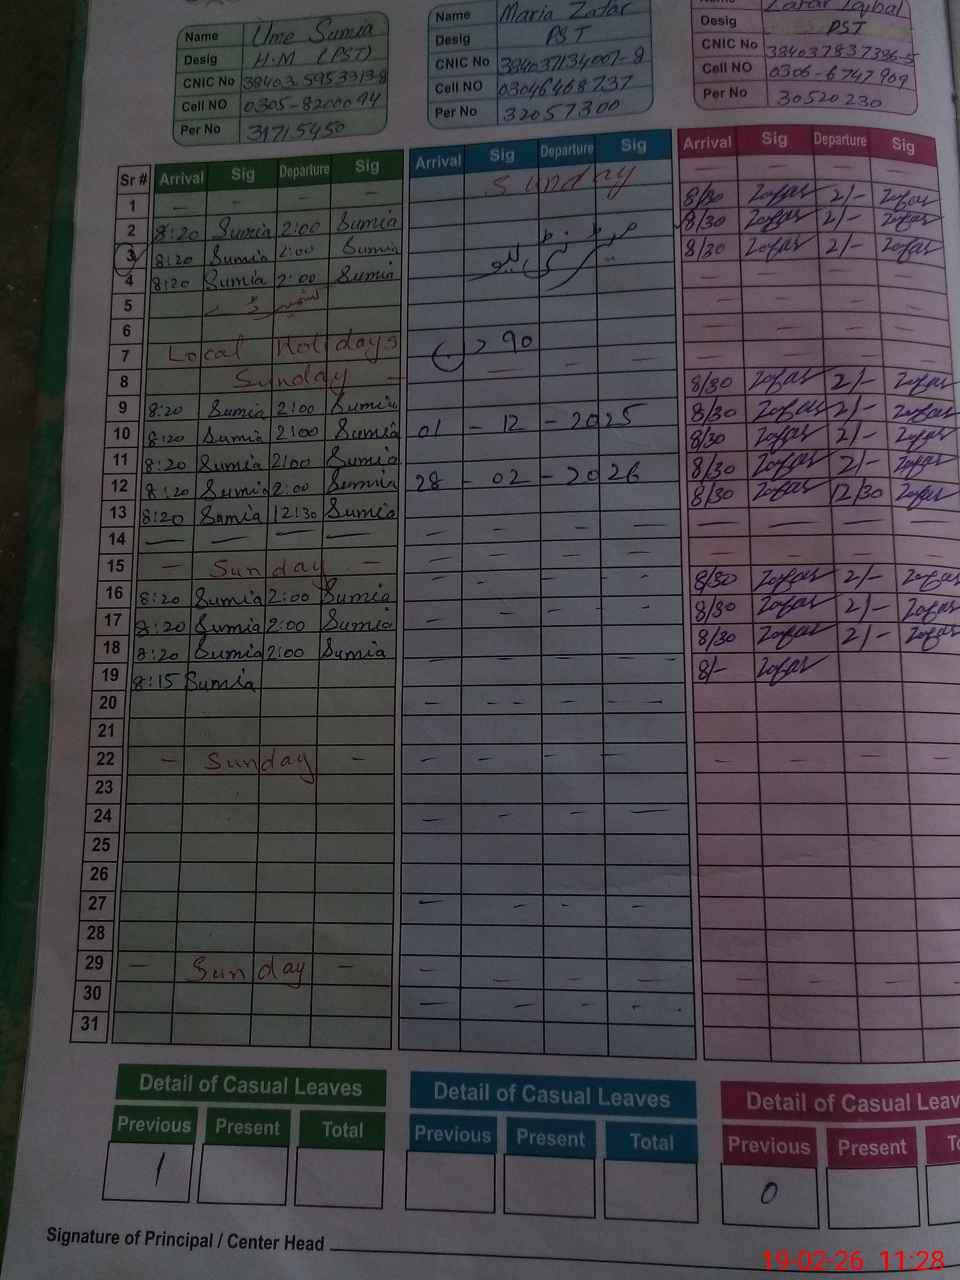 Name Ume Sumia
Desig H.M (PST)
CNIC No 3840359533138
Cell NO 0305-8200094
Per No 31715450
Name Maria Zafar
Desig PST
CNIC No 384037134007-8
Cell NO 03046468737
Per No 32057300
Zafar Iqbal
Desig PST
CNIC No 384037837396-5
Cell NO 0306-6747909
Per No 30520230
Sr # Arrival Sig Departure Sig Arrival Sig Departure Sig Arrival Sig Departure Sig
1 — — — — Sunday — — — —
2 8:20 Sumia 2:00 Sumia 8/30 Zafar 2/- Zafar
3 8:20 Sumia 2:00 Sumia 8/30 Zafar 2/- Zafar
4 8:20 Sumia 2:00 Sumia 8/30 Zafar 2/- Zafar
5 — — — —
6 — — — —
7 Local Holidays 90 — — — —
8 Sunday — — — — — — — —
9 8:20 Sumia 2:00 Sumia 8/30 Zafar 2/- Zafar
10 8:20 Sumia 2:00 Sumia 01 - 12 - 2025 8/30 Zafar 2/- Zafar
11 8:20 Sumia 2:00 Sumia 8/30 Zafar 2/- Zafar
12 8:20 Sumia 2:00 Sumia 28 - 02 - 2026 8/30 Zafar 2/- Zafar
13 8:20 Sumia 12:30 Sumia 8/30 Zafar 12/30 Zafar
14 — — — — — — — — — — — —
15 — Sunday — — — — — — — — —
16 8:20 Sumia 2:00 Sumia - - - - 8/30 Zafar 2/- Zafar
17 8:20 Sumia 2:00 Sumia - - - - 8/30 Zafar 2/- Zafar
18 8:20 Sumia 2:00 Sumia 8/30 Zafar 2/- Zafar
19 8:15 Sumia — — — — 8/- Zafar
20 — — — —
21
22 — Sunday — — — — — — — — —
23
24 — — — —
25
26
27 — - - -
28
29 — Sunday — — — — — — — — —
30 — - - -
31
Detail of Casual Leaves Detail of Casual Leaves Detail of Casual Leav
Previous Present Total Previous Present Total Previous Present T
1 0
Signature of Principal / Center Head
19-02-26 11:28